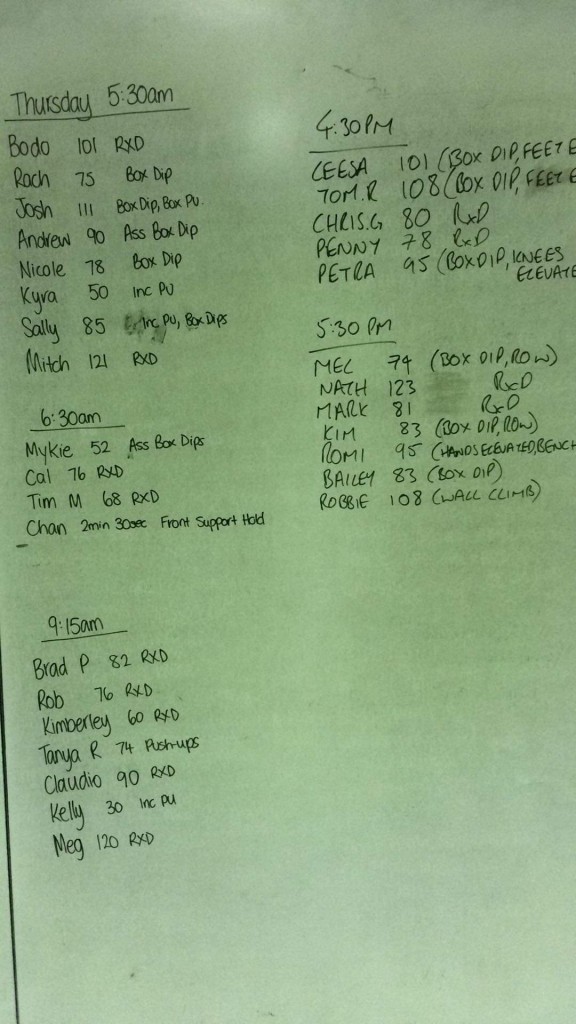 Thursday 5:30am
Bodo 101 RXD
Rach 75 Box Dip
Josh 111 Box Dip, Box PU.
Andrew 90 Ass Box Dip
Nicole 78 Box Dip
Kyra 50 Inc PU
Sally 85 Inc PU, Box Dips
Mitch 121 RXD
6:30am
Mykie 52 Ass Box Dips
Cal 76 RXD
Tim M 68 RXD
Chan 2min 30sec Front Support Hold
9:15am
Brad P 82 RXD
Rob 76 RXD
Kimberley 60 RXD
Tanya R 74 Push-ups
Claudio 90 RXD
Kelly 30 Inc PU
Meg 120 RXD
4:30PM
LEESA 101 (BOX DIP, FEET E
TOM.R 108 (BOX DIP, FEET E
CHRIS.G 80 RxD
PENNY 78 RxD
PETRA 95 (BOX DIP, KNEES
ELEVATE
5:30 PM
MEL 74 (BOX DIP, ROW)
NATH 123 RxD
MARK 81 RxD
KIM 83 (BOX DIP, ROW)
ROMI 95 (HANDS ELEVATED, BENCH
BAILEY 83 (BOX DIP)
ROBBIE 108 (WALL CLIMB)